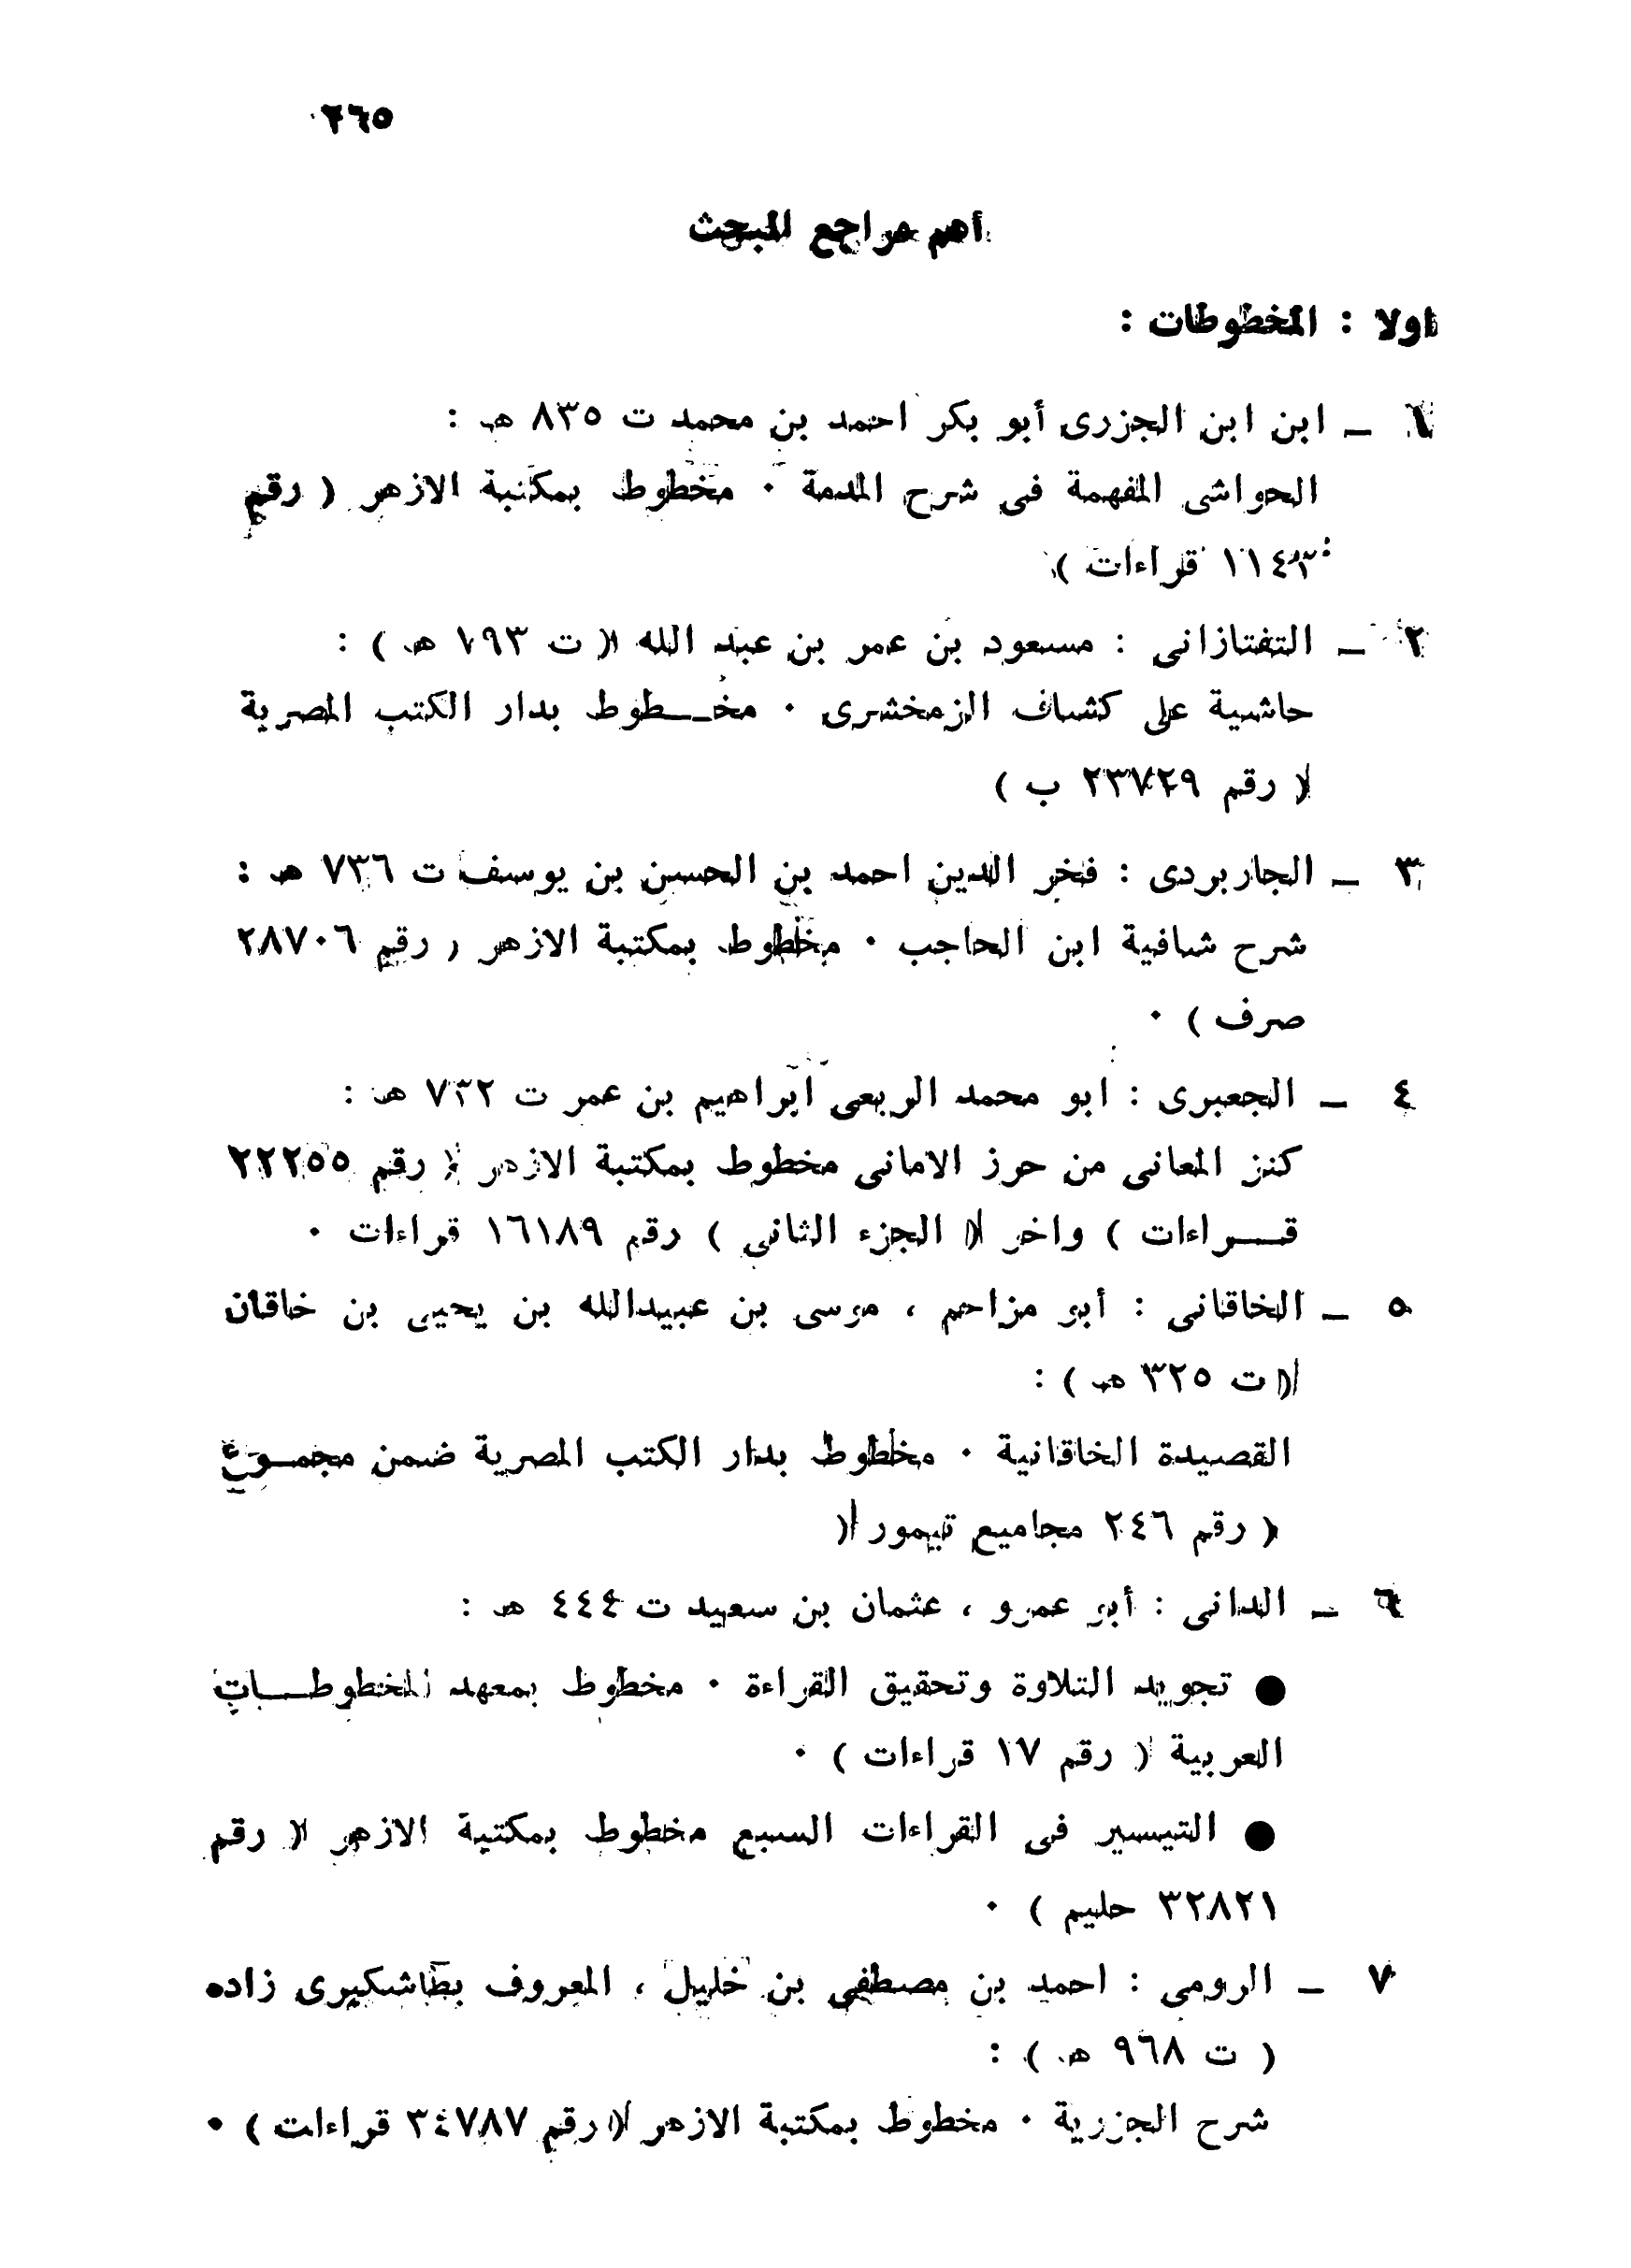 ٢٦٥
أهم مراجع البحث
اولا : المخطوطات :
١ ـ ابن ابن الجزرى أبو بكر احمد بن محمد ت ٨٣٥ هـ :
الحواشى المفهمة فى شرح المقدمة ٠ مخطوط بمكتبة الازهر ( رقم
١١٤٣ قراءات )
٢ ـ التفتازانى : مسعود بن عمر بن عبد الله ( ت ٧٩٣ هـ ) :
حاشية على كشاف الزمخشرى ٠ مخـــطوط بدار الكتب المصرية
( رقم ٢٣٧٢٩ ب )
٣ ـ الجاربردى : فخر الدين احمد بن الحسن بن يوسف ت ٧٣٦ هـ :
شرح شافية ابن الحاجب ٠ مخطوط بمكتبة الازهر ( رقم ٢٨٧٠٦
صرف ) ٠
٤ ـ الجعبرى : ابو محمد الربعى ابراهيم بن عمر ت ٧٣٢ هـ :
كنز المعانى من حرز الامانى مخطوط بمكتبة الازهر ( رقم ٢٢٢٥٥
قـــراءات ) واخر ( الجزء الثانى ) رقم ١٦١٨٩ قراءات ٠
٥ ـ الخاقانى : أبو مزاحم ، موسى بن عبيدالله بن يحيى بن خاقان
( ت ٣٢٥ هـ ) :
القصيدة الخاقانية ٠ مخطوط بدار الكتب المصرية ضمن مجمــوع
( رقم ٢٤٦ مجاميع تيمور )
٦ ـ الدانى : أبو عمرو ، عثمان بن سعيد ت ٤٤٤ هـ :
● تجويد التلاوة وتحقيق القراءة ٠ مخطوط بمعهد المخطوطـــات
العربية ( رقم ١٧ قراءات ) ٠
● التيسير فى القراءات السبع مخطوط بمكتبة الازهر ( رقم
٣٢٨٢١ حليم ) ٠
٧ ـ الرومى : احمد بن مصطفى بن خليل ، المعروف بطاشكيرى زاده
( ت ٩٦٨ هـ ) :
شرح الجزرية ٠ مخطوط بمكتبة الازهر ( رقم ٣٤٧٨٧ قراءات ) ٠